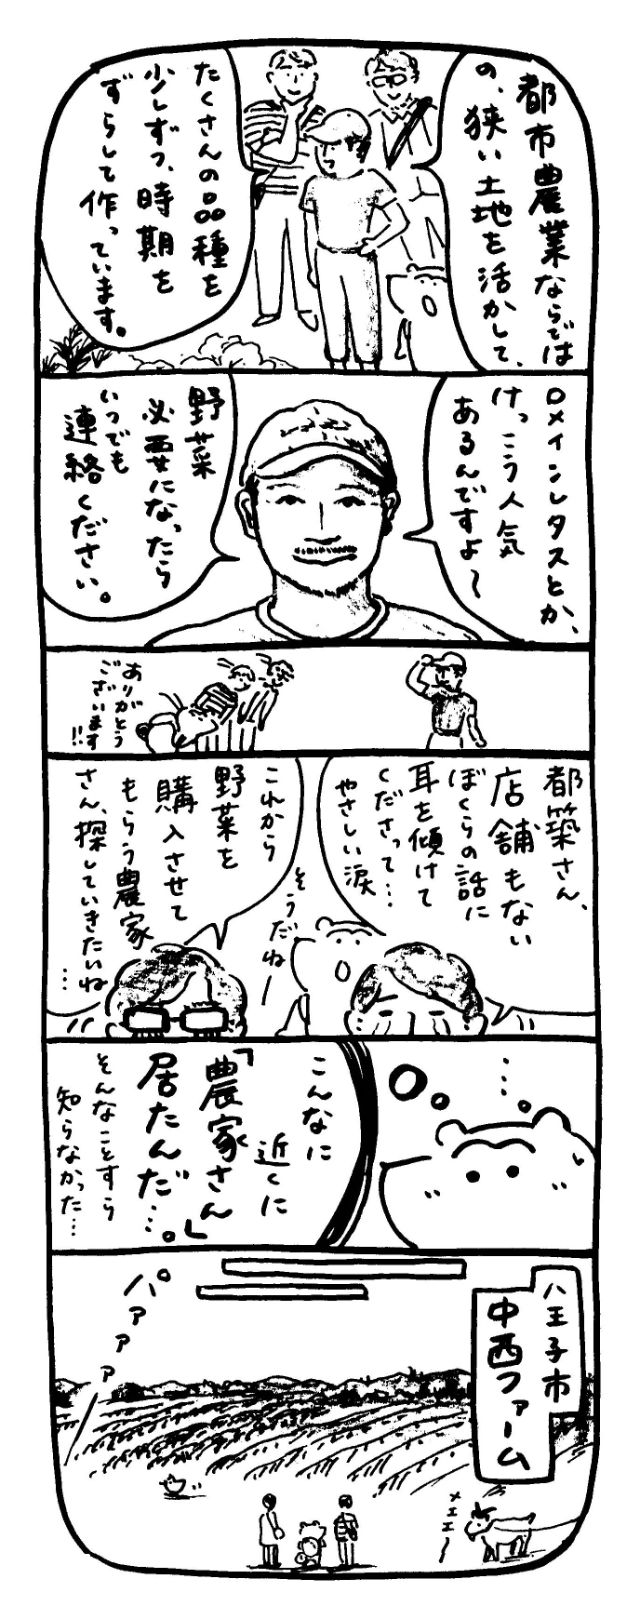 都市農業ならでは
の、狭い土地を活かして、
たくさんの品種を
少しずつ、時期を
ずらして作っています。
ロメインレタスとか、
けっこう人気
あるんですよ〜
野菜
必要になったら
いつでも
連絡ください。
ありがとう
ございます
!!
都築さん、
店舗もない
ぼくらの話に
耳を傾けて
くださって…
やさしい涙
そうだねー
これから
野菜を
購入させて
もらう農家
さん、探していきたいね
…
…
こんなに
近くに
「農家さん」
居たんだ…。
そんなことすら
知らなかった…
八王子市
中西ファーム
パァァァ
メエエ〜